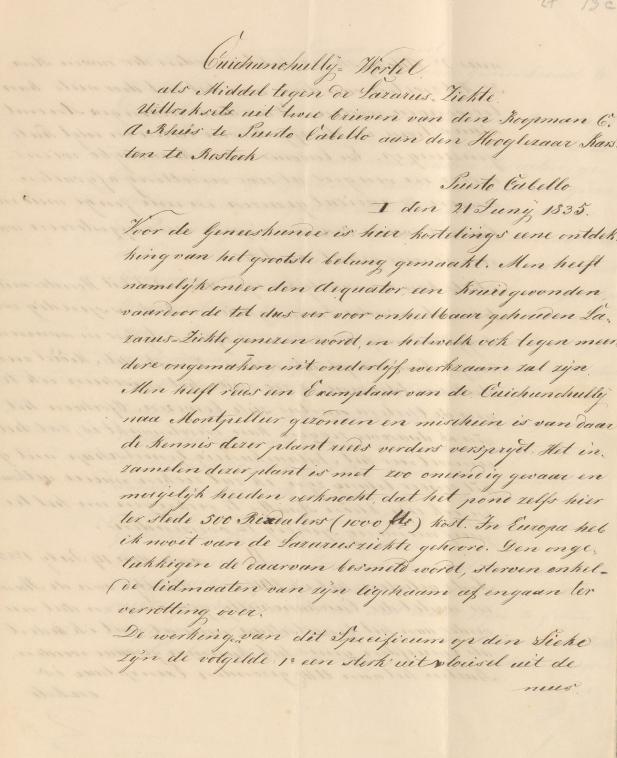 Cuichunchullij-Wortel
als Middel tegen de Lazarus-Ziekte.
Uittreksels uit twee brieven van den Koopman C.
A Rhuis te Puerto Cabello aan den Hoogleraar Kars-
ten te Rostock
Puerto Cabello
I den 21 Junij 1835.
Voor de Geneeskunde is hier kortelings eene ontdek-
king van het grootste belang gemaakt. Men heeft
namelijk onder den Aequator een Kruid gevonden,
waardoor de tot dus ver voor onheelbaar gehouden La-
zarus-Ziekte genezen wordt, en hetwelk ook tegen meer
dere ongemaken in't onderlijf werkzaam zal zijn.
Men heeft reeds een Exemplaar van de Cuichunchullij
naa Montpellier gezonden en mischien is van daar
de Kennis dezer plant reeds verders verspryd. Het in-
zamelen dezer plant is met zoo oneindig gevaar en
moeijelijk heeden verknocht, dat het pond zelfs hier
ter stede 500 Rixdalers (1000 fls) kost. In Europa heb
ik nooit van de Lazarusziekte gehoord. Den onge-
lukkigen de daarvan besmet wordt, sterven enkel-
de lidmaaten van zijn ligchaam af en gaan ter
verrotting over.
De werking van dit Specificum op den Zieke
zijn de volgelde 1º een sterk uitvloeisel uit de
neus